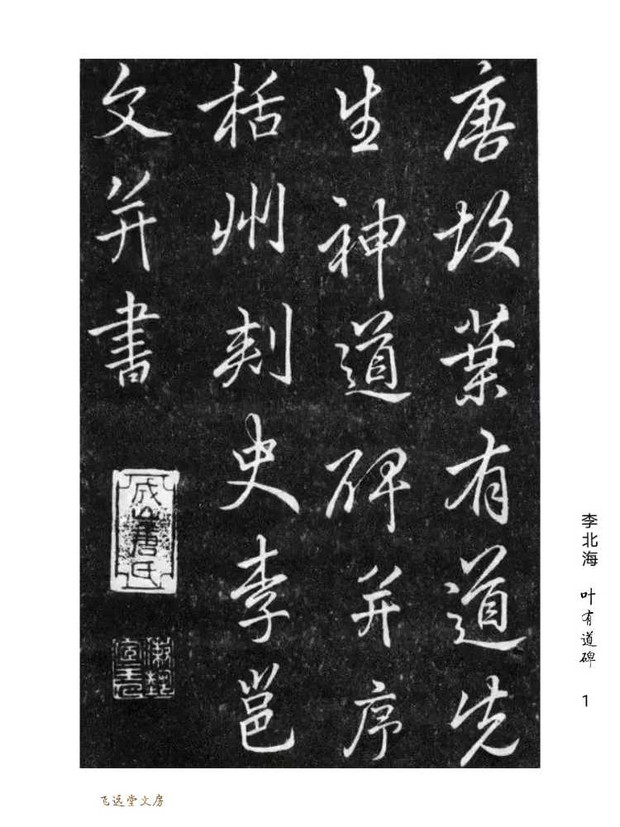 唐故葉有道先
生神道碑并序
栝州刾史李邕
文并書
成山唐氏
李北海 叶有道碑 1
飞远堂文房